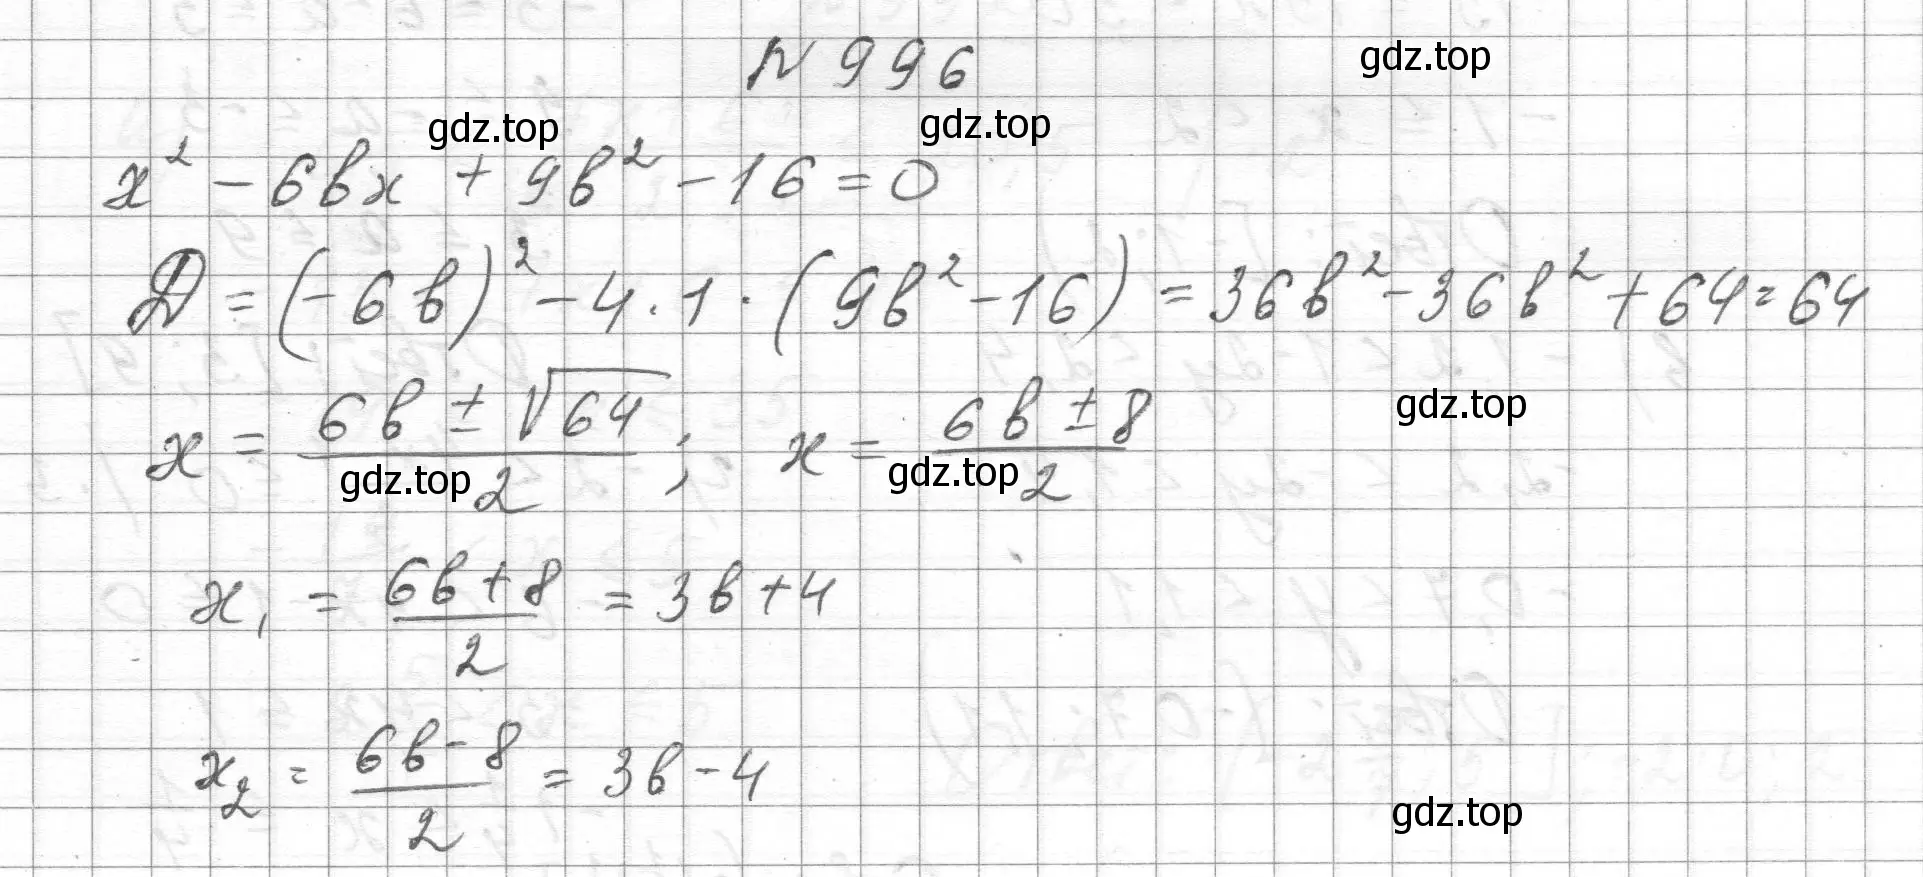 N 996
gdz.top
gdz.top gdz.top
x² - 6bx + 9b² - 16 = 0
D = (-6b)² - 4 · 1 · (9b² - 16) = 36b² - 36b² + 64 = 64
x = (6b ± √64)/2 ; x = (6b ± 8)/2
gdz.top
gdz.top gdz.top
x₁ = (6b + 8)/2 = 3b + 4
x₂ = (6b - 8)/2 = 3b - 4
gdz.top